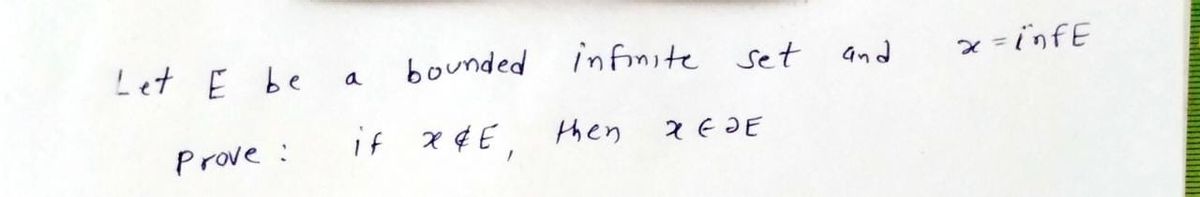 Let E be a bounded infinite set and x = inf E
Prove : if x ∉ E, then x ∈ ∂E